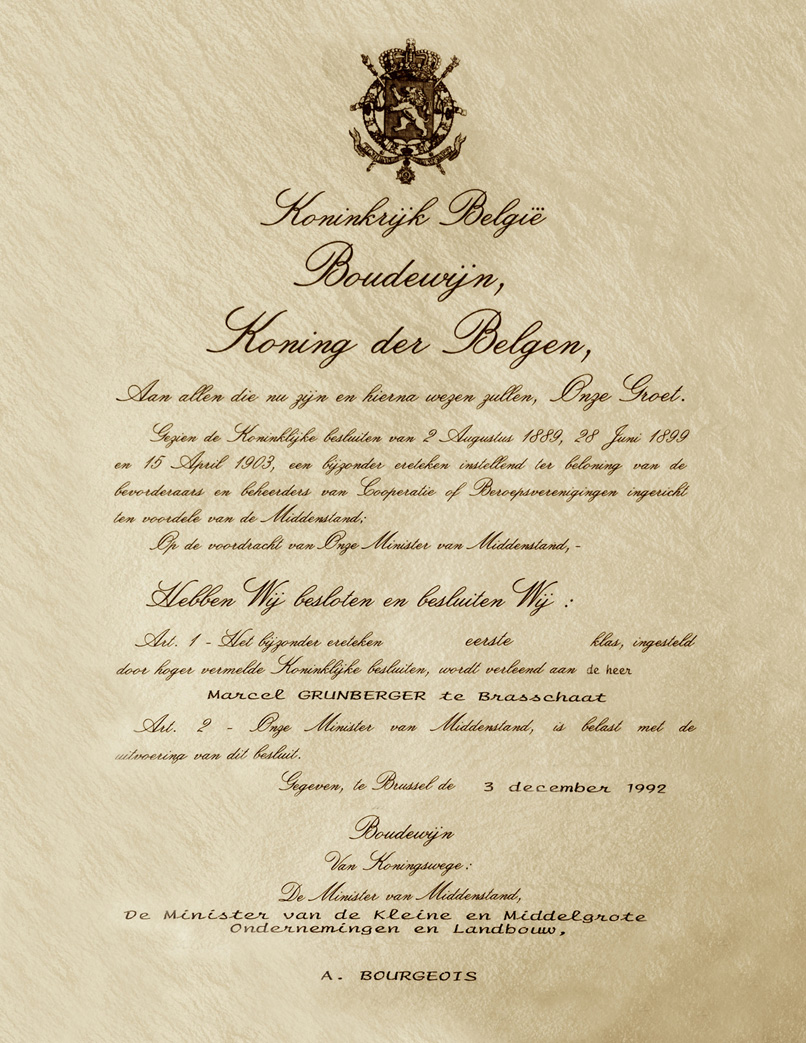 Koninkrijk België
Boudewijn,
Koning der Belgen,
Aan allen die nu zijn en hierna wezen zullen, Onze Groet.
Gezien de Koninklijke besluiten van 2 Augustus 1889, 28 Juni 1899
en 15 April 1903, een bijzonder ereteken instellend ter beloning van de
bevorderaars en beheerders van Cooperatie of Beroepsverenigingen ingericht
ten voordele van de Middenstand;
Op de voordracht van Onze Minister van Middenstand, -
Hebben Wij besloten en besluiten Wij :
Art. 1 - Het bijzonder ereteken eerste klas, ingesteld
door hoger vermelde Koninklijke besluiten, wordt verleend aan de heer
Marcel GRUNBERGER te Brasschaat
Art. 2 - Onze Minister van Middenstand, is belast met de
uitvoering van dit besluit.
Gegeven, te Brussel de 3 december 1992
Boudewijn
Van Koningswege:
De Minister van Middenstand,
De Minister van de Kleine en Middelgrote
Ondernemingen en Landbouw,
A. BOURGEOIS